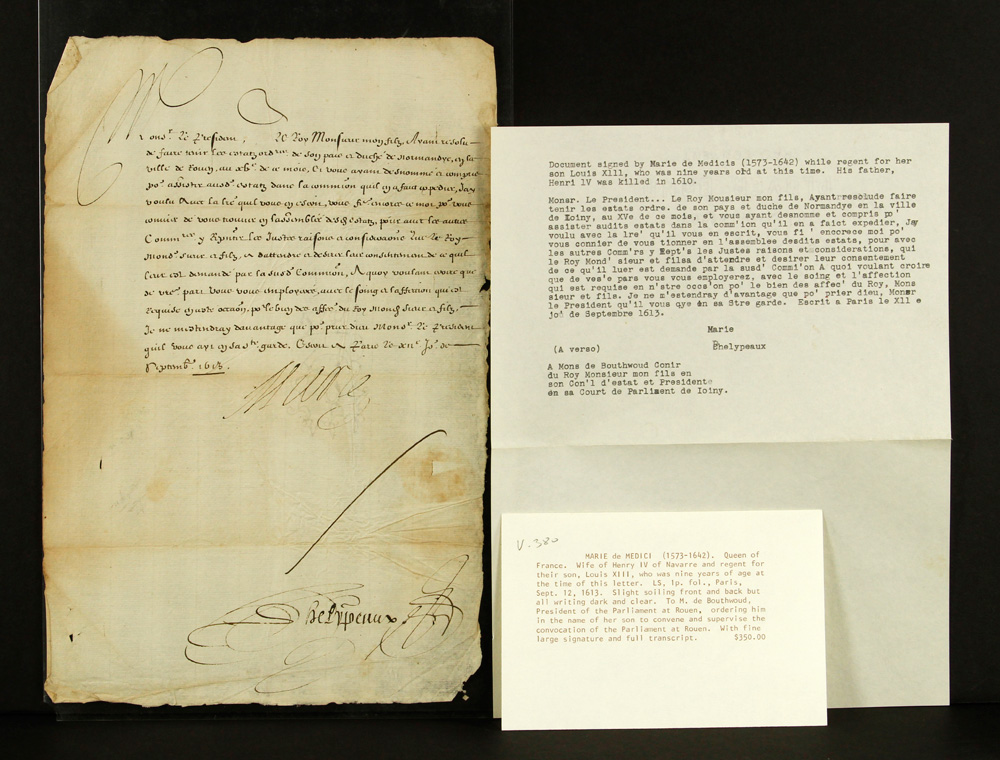 Monsr. Le President, Le Roy Monsieur mon filz, Ayant resolu
de faire tenir les estatz ordres de son pais et duché de Normandye, en la
ville de Rouen, au xve. de ce mois, Et vous ayant desnommé et compris
por. assister ausd. estatz dans la comm'ion qu'il en a faict expedier, J'ay
voulu avec la lre qu'il vous en escrit, vous fe. encores ce mot por. vous
convier de vous trouver en l'assemblée desd. estatz, pour avec les autres
Commres. y les Justes raisons et considerations que le Roy
mond. sieur et filz, a d'attendre et desirer leur consentement de ce quil
leur est demandé par la susd. Commission, A quoy voulant croire que
de vre. part vous vous employerez, avec le soing et l'affection qui est
requise en vostre occasion, por. le bien des affres. du Roy Mond. sieur et filz,
Je ne m'estendray davantage que por. prier dieu Monsr. Le President
quil vous ayt en sa ste. garde. Escrit A Paris le xiie. Jor. de
Septemb. 1613.
Marie
Phelypeaux
Document signed by Marie de Medicis (1573-1642) while regent for her
son Louis XIII, who was nine years old at this time. His father,
Henri IV was killed in 1610.
Monsr. Le President... Le Roy Mousieur mon fils, Ayant resolude faire
tenir les estats ordre. de son pays et duche de Normandye en la ville
de Ioiny, au XVe de ce mois, et vous ayant desnomme et compris po'
assister audits estats dans la comm'ion qu'il en a faict expedier, Jay
voulu avec la lre' qu'il vous en escrit, vous fi ' encorece moi po'
vous connier de vous tionner en l'assemblee desdits estats, pour avec
les autres Comm'rs y Rept's les Justes raisons et considerations, qui
le Roy Mond' sieur et filsa d'attendre et desirer leur consentement
de ce qu'il luer est demande par la susd' Commi'on A quoi voulant croire
que de ves'e pars vous vous employerez, avec le soing et l'affection
qui est requise en n'stre occs'on po' le bien des affec' du Roy, Mons
sieur et fils. Je ne m'estendray d'avantage que po' prier dieu, Monsr
le President qu'il vous qye en sa Stre garde. Escrit a Paris le XII e
jo' de Septembre 1613.
Marie
(A verso) Phelypeaux
A Mons de Bouthwoud Conir
du Roy Monsieur mon fils en
son Con'l d'estat et Presidente
en sa Court de Parliment de Ioiny.
V-380
MARIE de MEDICI (1573-1642). Queen of
France. Wife of Henry IV of Navarre and regent for
their son, Louis XIII, who was nine years of age at
the time of this letter. LS, 1p. fol., Paris,
Sept. 12, 1613. Slight soiling front and back but
all writing dark and clear. To M. de Bouthwoud,
President of the Parliament at Rouen, ordering him
in the name of her son to convene and supervise the
convocation of the Parliament at Rouen. With fine
large signature and full transcript. $350.00